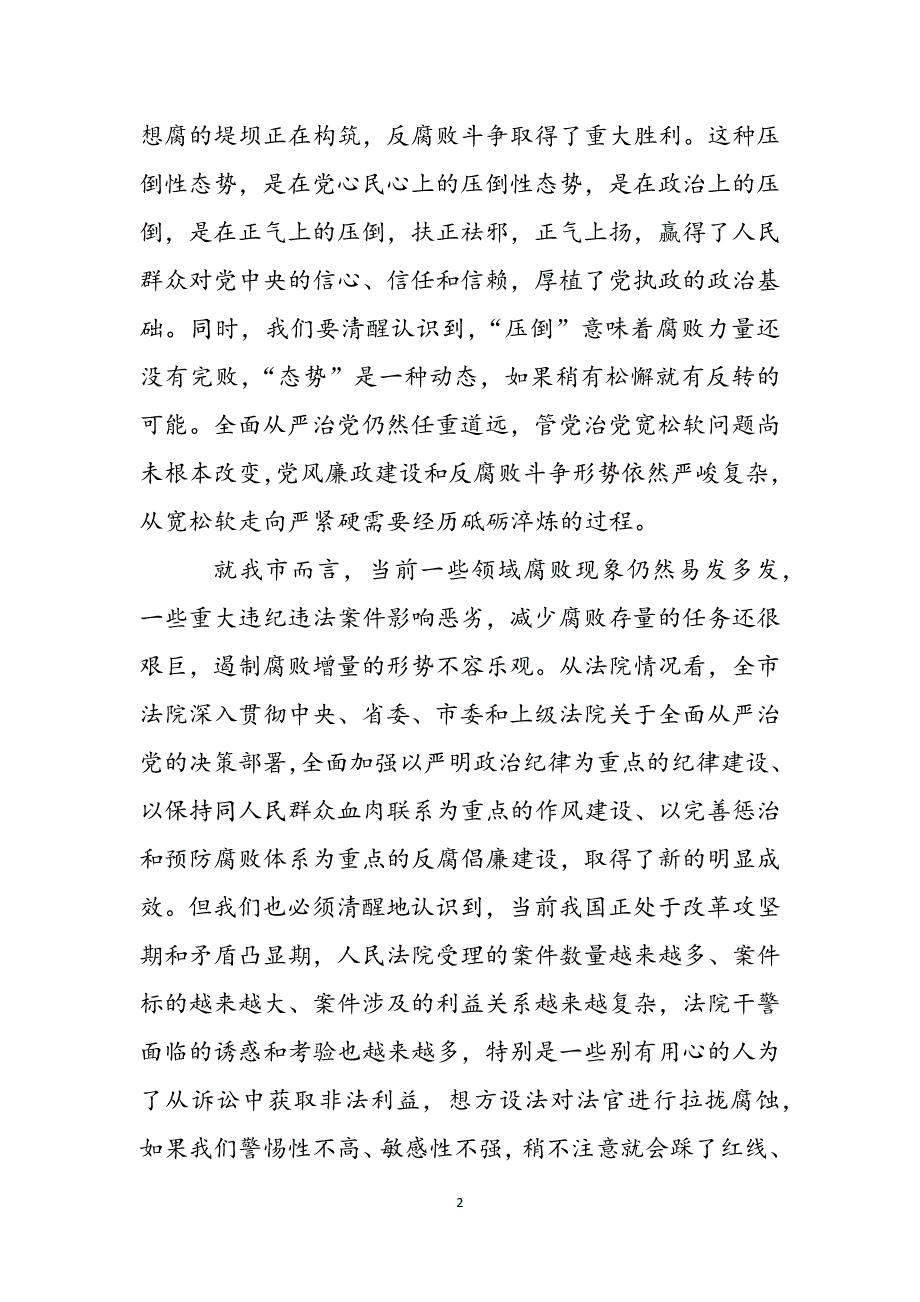 想腐的堤坝正在构筑，反腐败斗争取得了重大胜利。这种压
倒性态势，是在党心民心上的压倒性态势，是在政治上的压
倒，是在正气上的压倒，扶正祛邪，正气上扬，赢得了人民
群众对党中央的信心、信任和信赖，厚植了党执政的政治基
础。同时，我们要清醒认识到，“压倒”意味着腐败力量还
没有完败，“态势”是一种动态，如果稍有松懈就有反转的
可能。全面从严治党仍然任重道远，管党治党宽松软问题尚
未根本改变，党风廉政建设和反腐败斗争形势依然严峻复杂，
从宽松软走向严紧硬需要经历砥砺淬炼的过程。
就我市而言，当前一些领域腐败现象仍然易发多发，
一些重大违纪违法案件影响恶劣，减少腐败存量的任务还很
艰巨，遏制腐败增量的形势不容乐观。从法院情况看，全市
法院深入贯彻中央、省委、市委和上级法院关于全面从严治
党的决策部署，全面加强以严明政治纪律为重点的纪律建设、
以保持同人民群众血肉联系为重点的作风建设、以完善惩治
和预防腐败体系为重点的反腐倡廉建设，取得了新的明显成
效。但我们也必须清醒地认识到，当前我国正处于改革攻坚
期和矛盾凸显期，人民法院受理的案件数量越来越多、案件
标的越来越大、案件涉及的利益关系越来越复杂，法院干警
面临的诱惑和考验也越来越多，特别是一些别有用心的人为
了从诉讼中获取非法利益，想方设法对法官进行拉拢腐蚀，
如果我们警惕性不高、敏感性不强，稍不注意就会踩了红线、
2